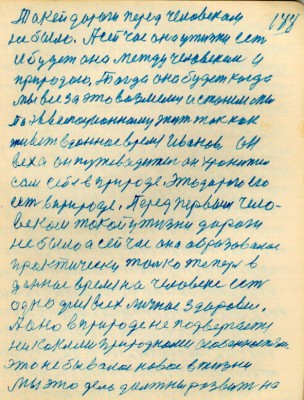 178
Такей дороги перед человеком
не было. А сейчас она у жизни есть
и будет она между человеком и
природою, Тогда она будет когда
мы все за это возмемся и станем мы
по эволюционному жит так как
живет в данное время Иванов он
веха он путеводител он хранител
сам себе в природе. Это дорога его
ест в природе. Перед первым чело-
веком такой у жизни дороги
не было а сейчас она образовалас
практически толко теперь в
данное время на человеке ест
одно для всех личное здоровие.
А оно в природе не подвергаетс
никаким природным
это не бывалое новое в жизни
Мы это дело должны розвит на